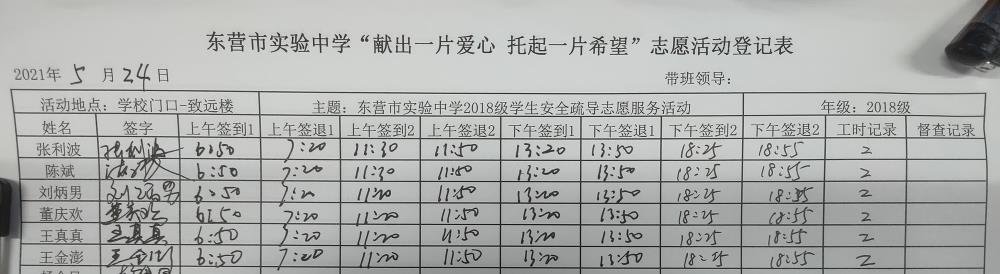 东营市实验中学“献出一片爱心 托起一片希望”志愿活动登记表
2021年 5 月 24 日 带班领导：
活动地点：学校门口-致远楼 主题：东营市实验中学2018级学生安全疏导志愿服务活动 年级：2018级
姓名 签字 上午签到1 上午签退1 上午签到2 上午签退2 下午签到1 下午签退1 下午签到2 下午签退2 工时记录 督查记录
张利波 张利波 6:50 7:20 11:30 11:50 13:20 13:50 18:25 18:55 2
陈斌 6:50 7:20 11:30 11:50 13:20 13:50 18:25 18:55 2
刘炳男 刘炳男 6:50 7:20 11:20 11:50 13:20 13:50 18:25 18:55 2
董庆欢 董庆欢 6:50 7:20 11:20 11:50 13:20 13:50 18:25 18:55 2
王真真 王真真 6:50 7:20 11:20 11:50 13:20 13:50 18:25 18:55 2
王金澎 王金澎 6:50 7:20 11:20 11:50 13:20 13:50 18:25 18:55 2